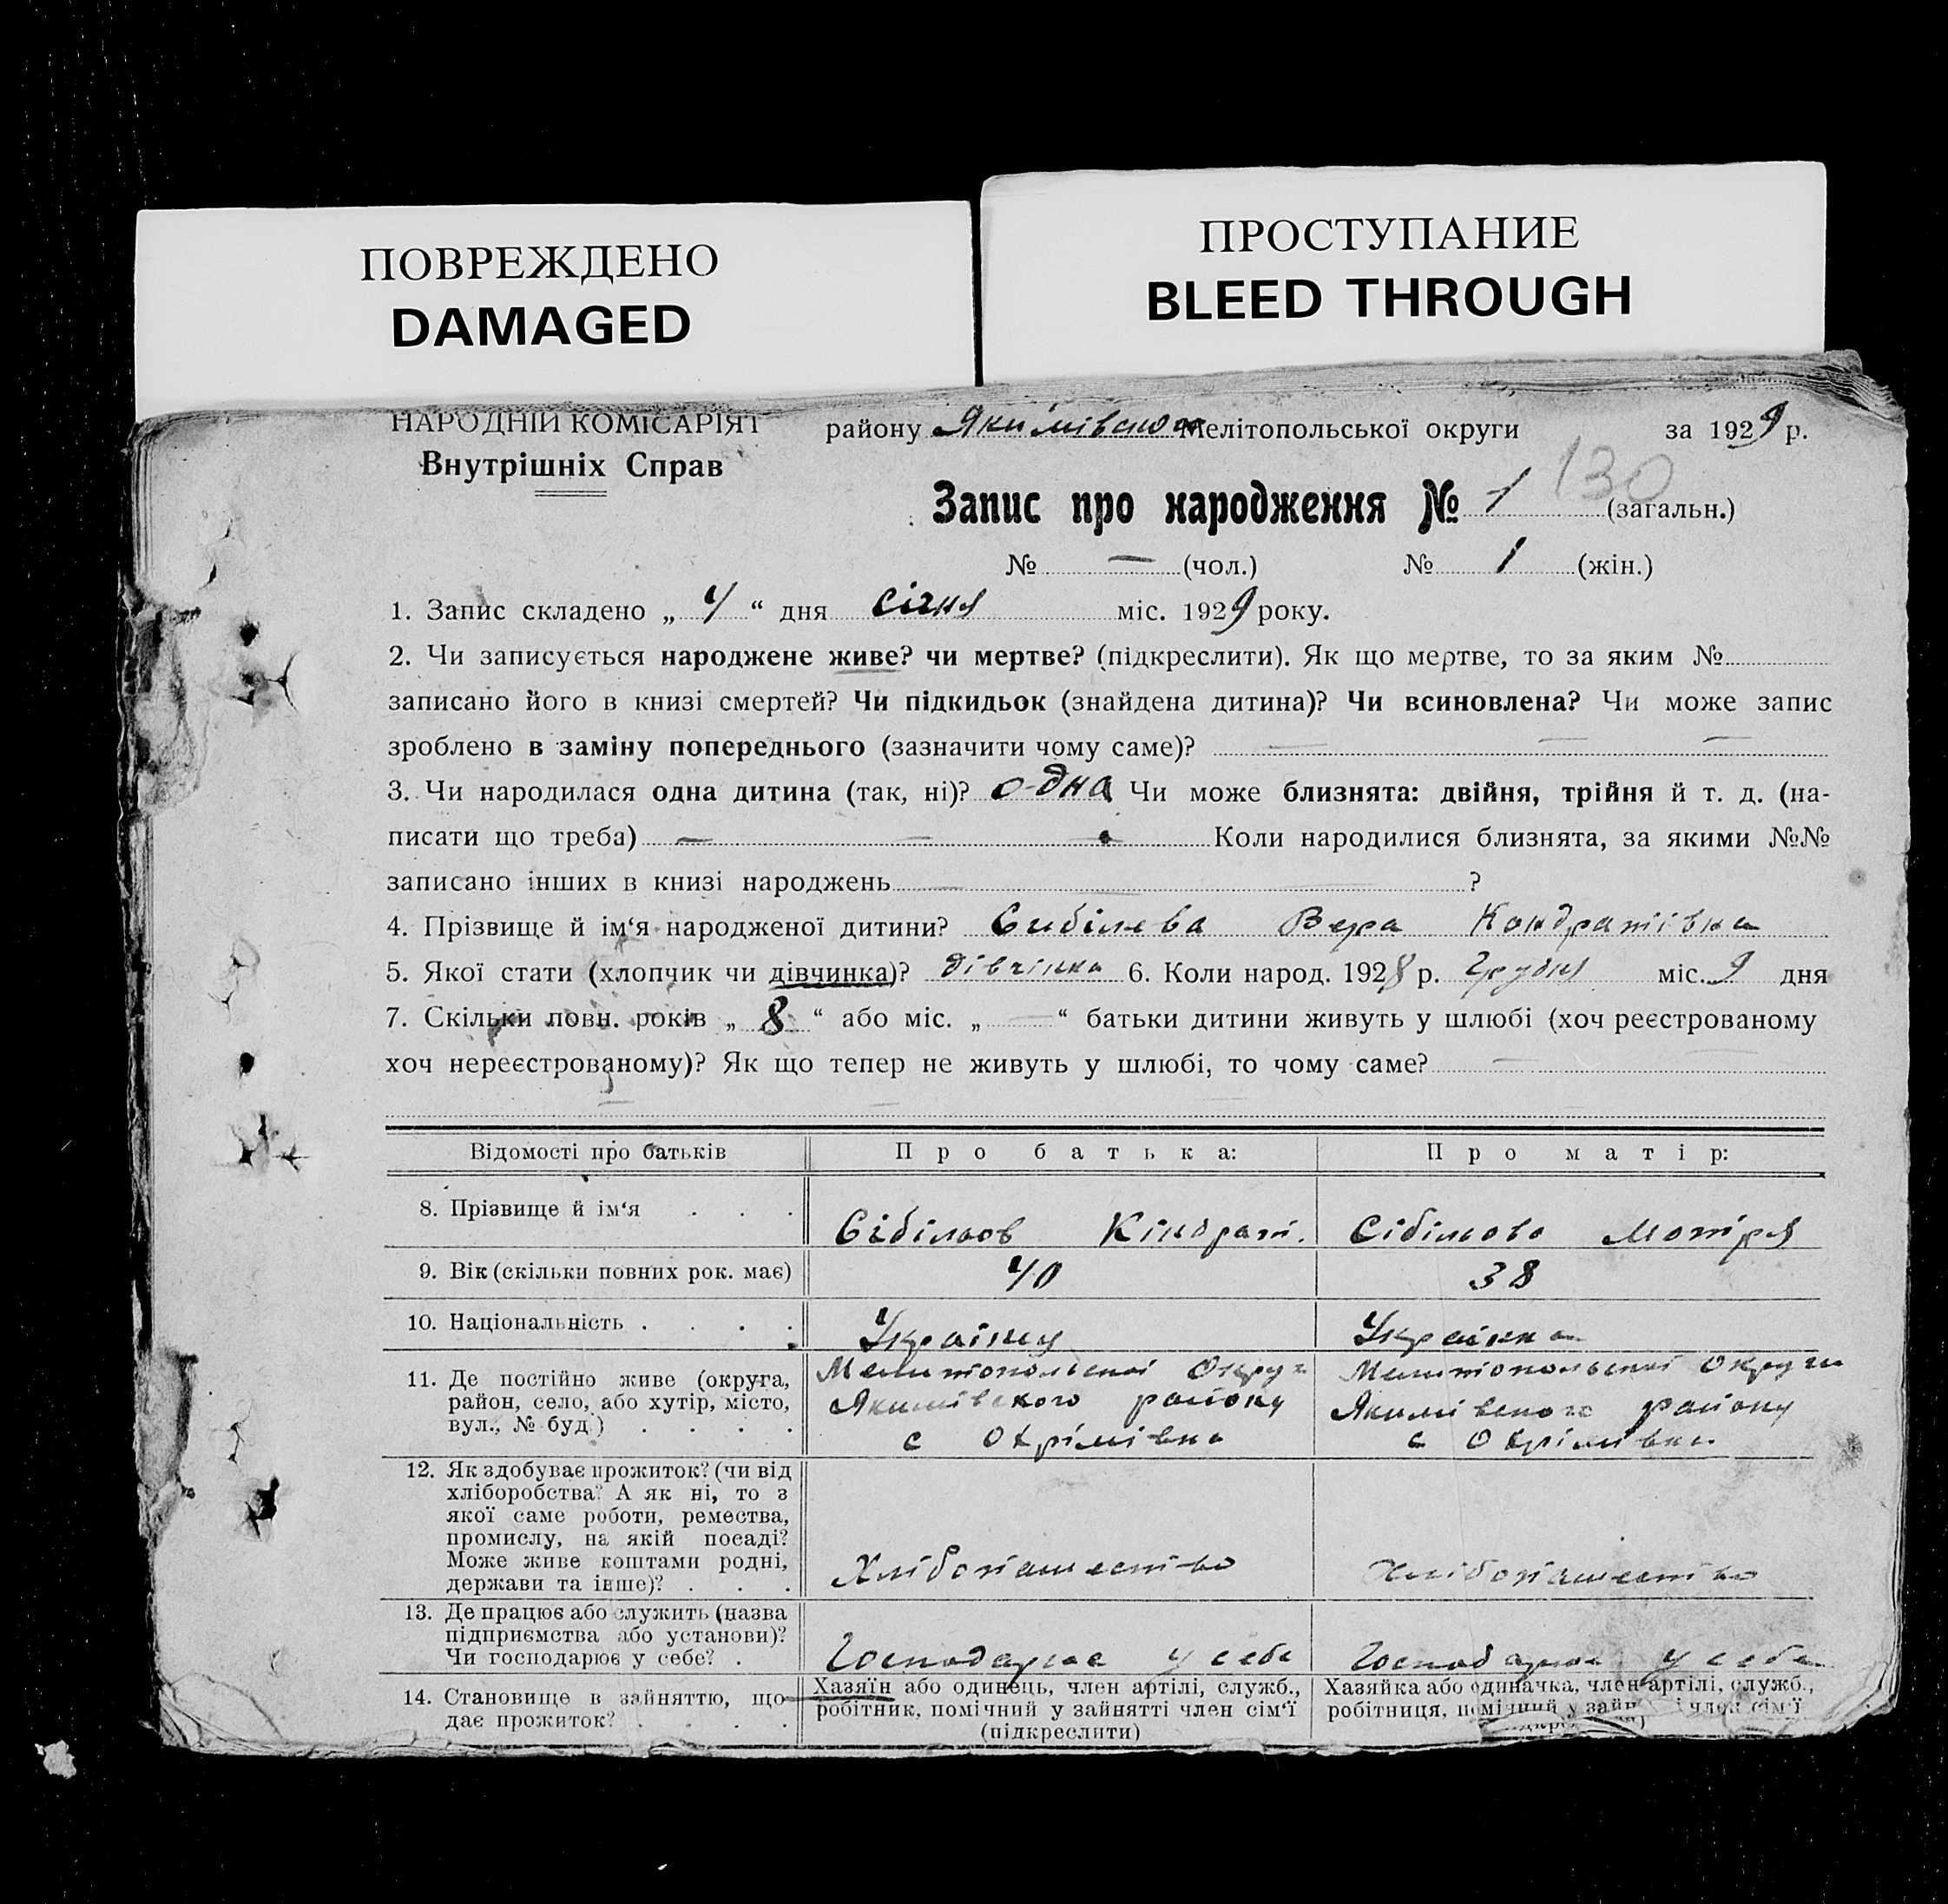 ПОВРЕЖДЕНО
DAMAGED
ПРОСТУПАНИЕ
BLEED THROUGH
НАРОДНІЙ КОМІСАРІЯТ
Внутрішніх Справ
району Мелітопольської округи за 1929 р.
130
Запис про народження № 1 (загальн.)
№ — (чол.) № 1 (жін.)
1. Запис складено „ 4 “ дня січня міс. 1929 року.
2. Чи записується народжене живе? чи мертве? (підкреслити). Як що мертве, то за яким №
записано його в книзі смертей? Чи підкидьок (знайдена дитина)? Чи всиновлена? Чи може запис
зроблено в заміну попереднього (зазначити чому саме)? — — —
3. Чи народилася одна дитина (так, ні)? одна Чи може близнята: двійня, трійня й т. д. (на-
писати що треба) — — Коли народилися близнята, за якими №№
записано інших в книзі народжень — — ?
4. Прізвище й ім‘я народженої дитини? Сибільова Вера Кондратівна
5. Якої стати (хлопчик чи дівчинка)? дівчінка 6. Коли народ. 1928 р. Грудня міс. 9 дня
7. Скільки повн. років „ 8 “ або міс. „ — “ батьки дитини живуть у шлюбі (хоч реєстрованому
хоч нереєстрованому)? Як що тепер не живуть у шлюбі, то чому саме? —
Відомості про батьків Про батька: Про матір:
8. Прізвище й ім‘я . . . Сібільов Кіндрат. Сібільова Мотря
9. Вік (скільки повних рок. має) 40 38
10. Національність . . . . Українец Українка
11. Де постійно живе (округа, район, село, або хутір, місто, вул., № буд.) . . . .
Мелитопольскої Округи
Якимівского району
с Охрімівка
Мелитопольскої Округи
Якимівского району
с Охрімівка
12. Як здобуває прожиток? (чи від
хліборобства? А як ні, то з
якої саме роботи, ремества,
промислу, на якій посаді?
Може живе коштами родні,
держави та інше)? . . .
Хлібопашество
Хлібопашество
13. Де працює або служить (назва
підприємства або установи)?
Чи господарює у себе? .
Господарює у себе
Господарює у себе
14. Становище в зайняттю, що
дає прожиток? . . . .
Хазяїн або одинець, член артілі, служб.,
робітник, помічний у зайнятті член сім‘ї
(підкреслити)
Хазяйка або одиначка, член артілі, служб.,
робітниця, помічний у член сім‘ї